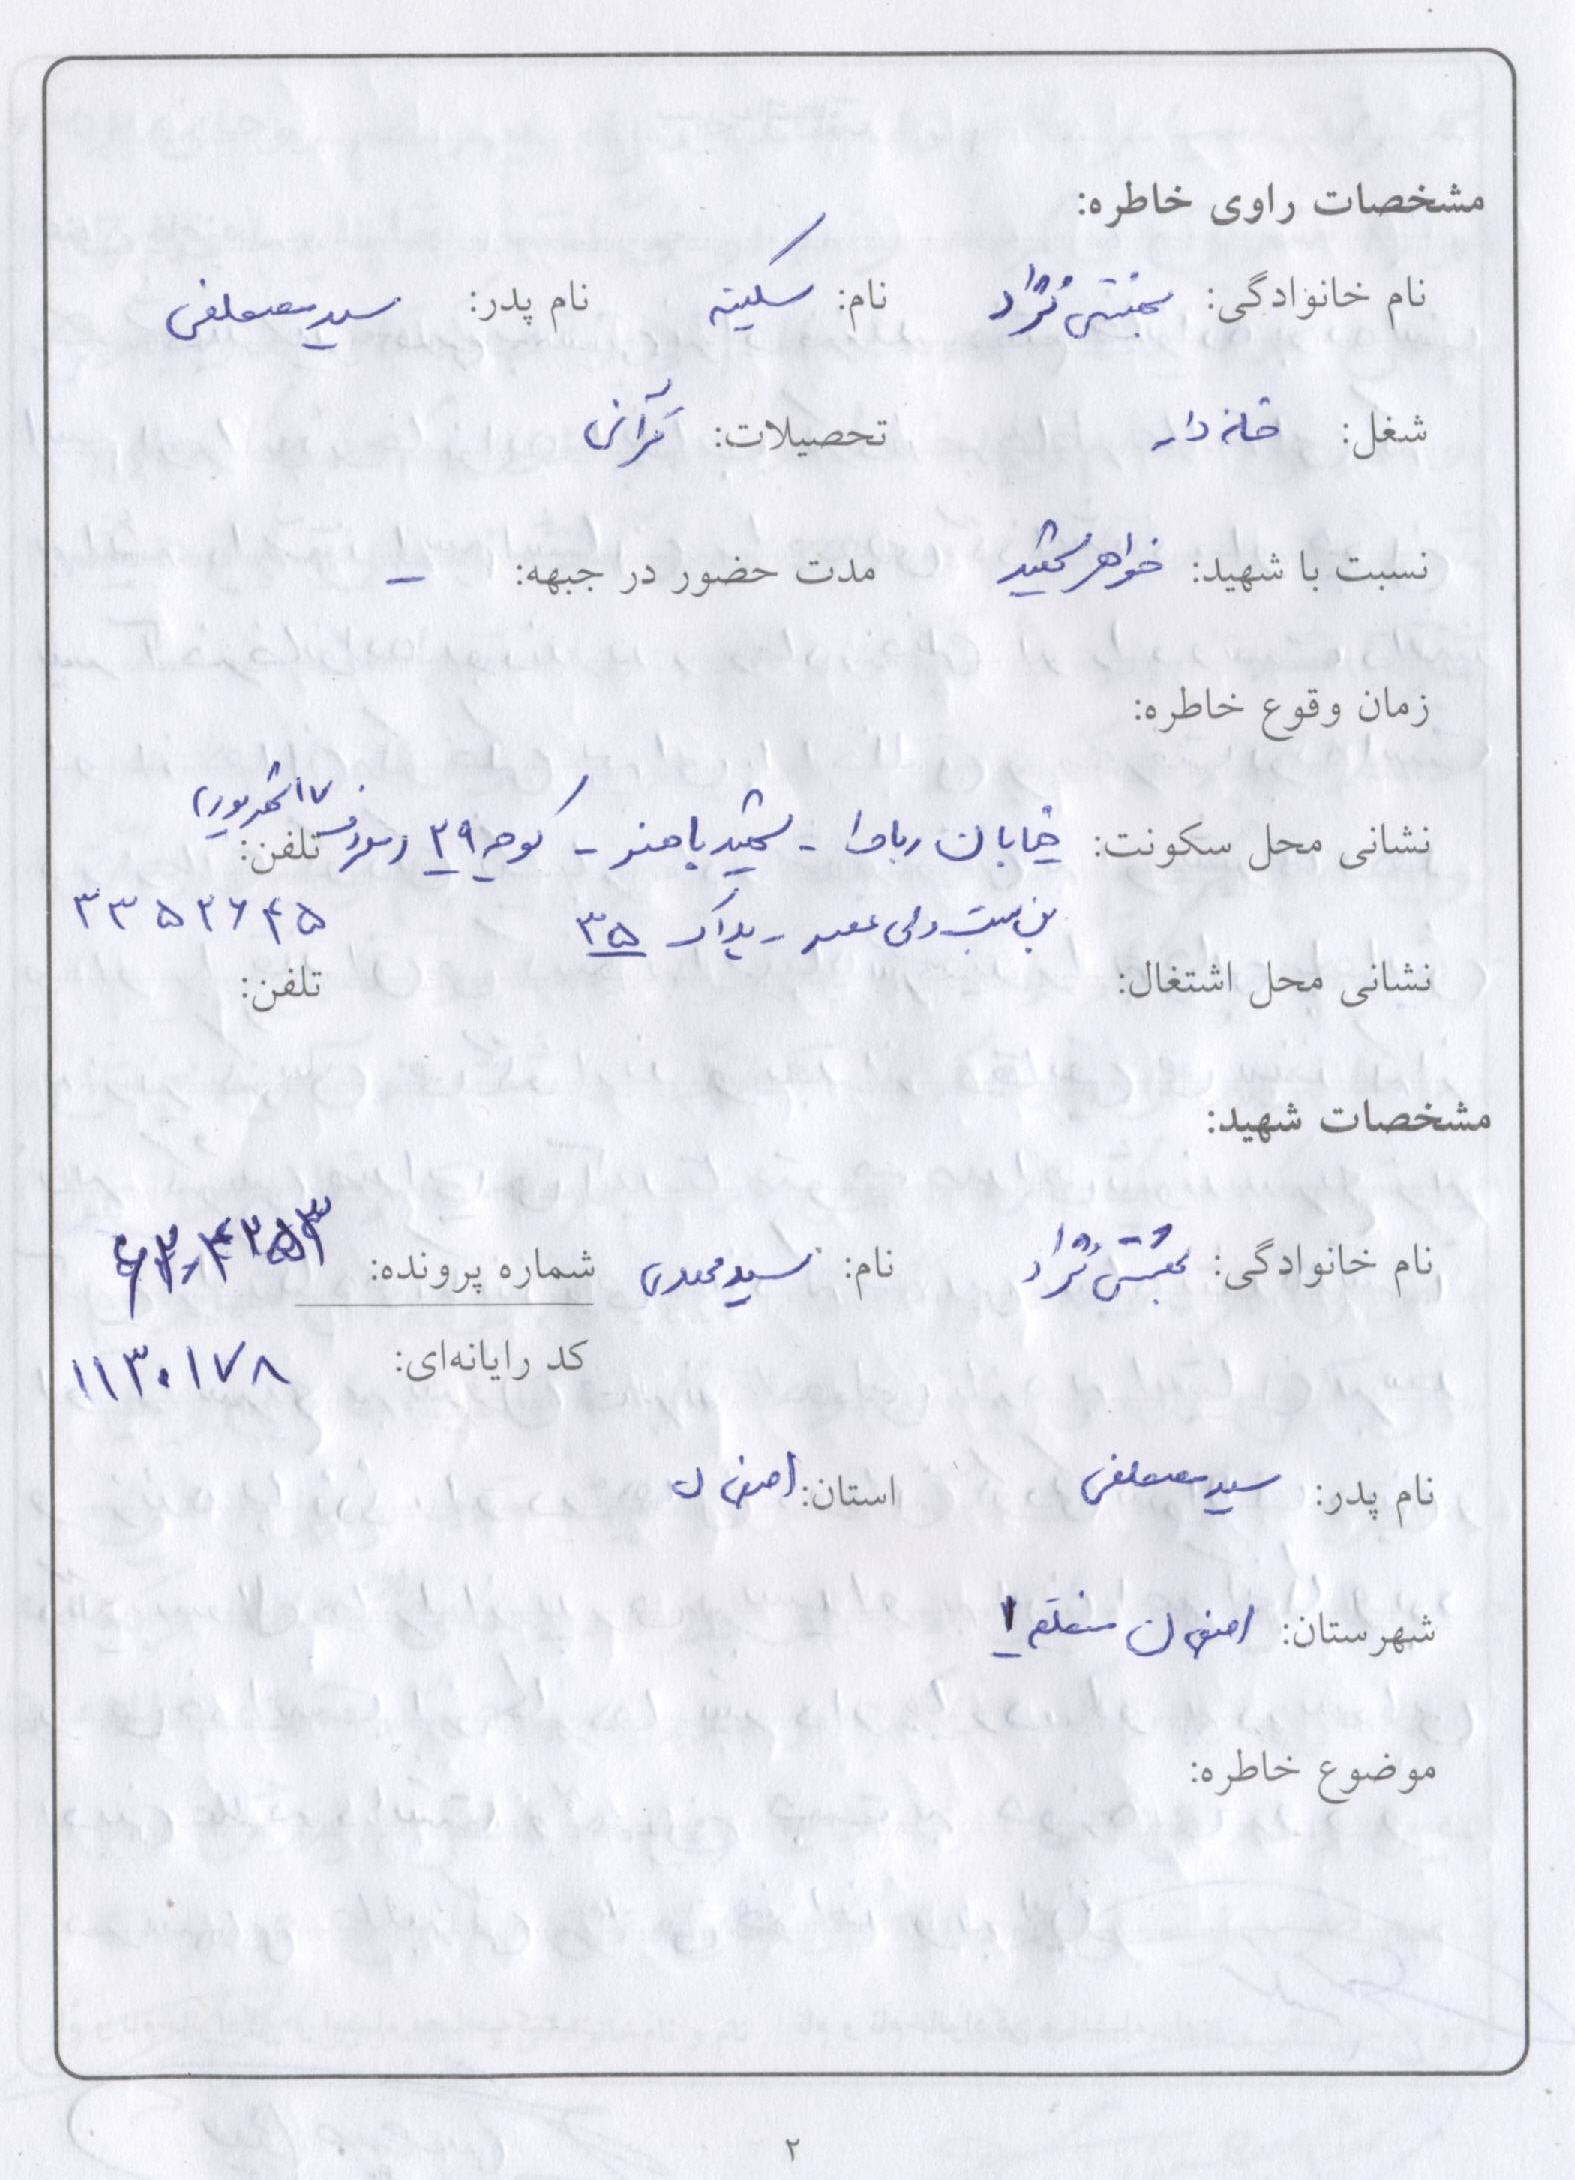 مشخصات راوی خاطره:
نام خانوادگی: مجتبی نژاد نام: سکینه نام پدر: سید مصطفی
شغل: خانه دار تحصیلات: قرآنی
نسبت با شهید: خواهر شهید مدت حضور در جبهه: –
زمان وقوع خاطره:
۱۷ شهریور
نشانی محل سکونت: خیابان رباط - شهید باهنر - کوچه ۲۹ تلفن:
بن بست ولی عصر - پلاک ۳۵ ۳۳۵۲۶۴۵
نشانی محل اشتغال: تلفن:
مشخصات شهید:
نام خانوادگی: مجتبی نژاد نام: سید مهدی شماره پرونده:
کد رایانه‌ای: ۱۱۳۰۱۷۸
نام پدر: سید مصطفی استان: اصفهان
شهرستان: اصفهان منطقه ۱
موضوع خاطره:
۲